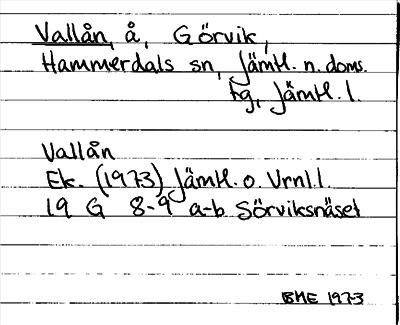 Vallån, å, Görvik,
Hammerdals sn, Jämtl. n. doms.
hg, Jämtl. l.
Vallån
Ek. (1973) Jämtl. o. Vrnl. l.
19 G 8-9 a-b Sörviksnäset
BME 1973